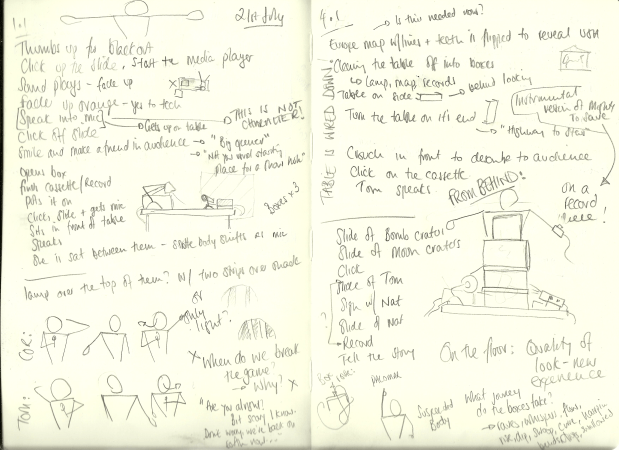 1.1
21st July
Thumbs up for blackout
Click up the slide. Start the media player
Sound plays - fade up
Fade up orange - yes to tech
[Speak into mic]
THIS IS NOT
CHARACTER!
Gets up on table
Click off slide
Smile and make a friend in audience → "Big opener"
→ "Not your usual starting
place for a show huh"
Opens box
finds cassette/Record
Puts it on
Clicks slide + gets mic
Sits in front of table
Speaks
Boxes x3
She is sat between them - body shifts as mic
lamp over the top of them? w/ two strips over shade
or
only
light?
COR:
TOM:
X When do we break
the game?
→ Why? X
"Are you alright?
story I know.
Don't worry, we're back on
now..."
4.1
Is this needed now?
Europe map w/lines + is flipped to reveal USA
Clearing the table of into boxes
↳ Lamp, map, records
Table on side → behind looking
Turn the table on it's end
→ "Highway to Stars"
Instrumental
version of
To Save
TABLE IS WIRED DOWN!
Crouch in front to debate to audience
Click on the cassette
Tom speaks.
FROM BEHIND!
on a
record
here!
Slide of Bomb crator
Slide of Moon craters
Click
Slide of Tom
Sign w/ Nat
Slide of Nat
Record
Tell the story
?
On the floor: Quality of
look - new
experience
Suspended
Body
What journey
do the boxes take?